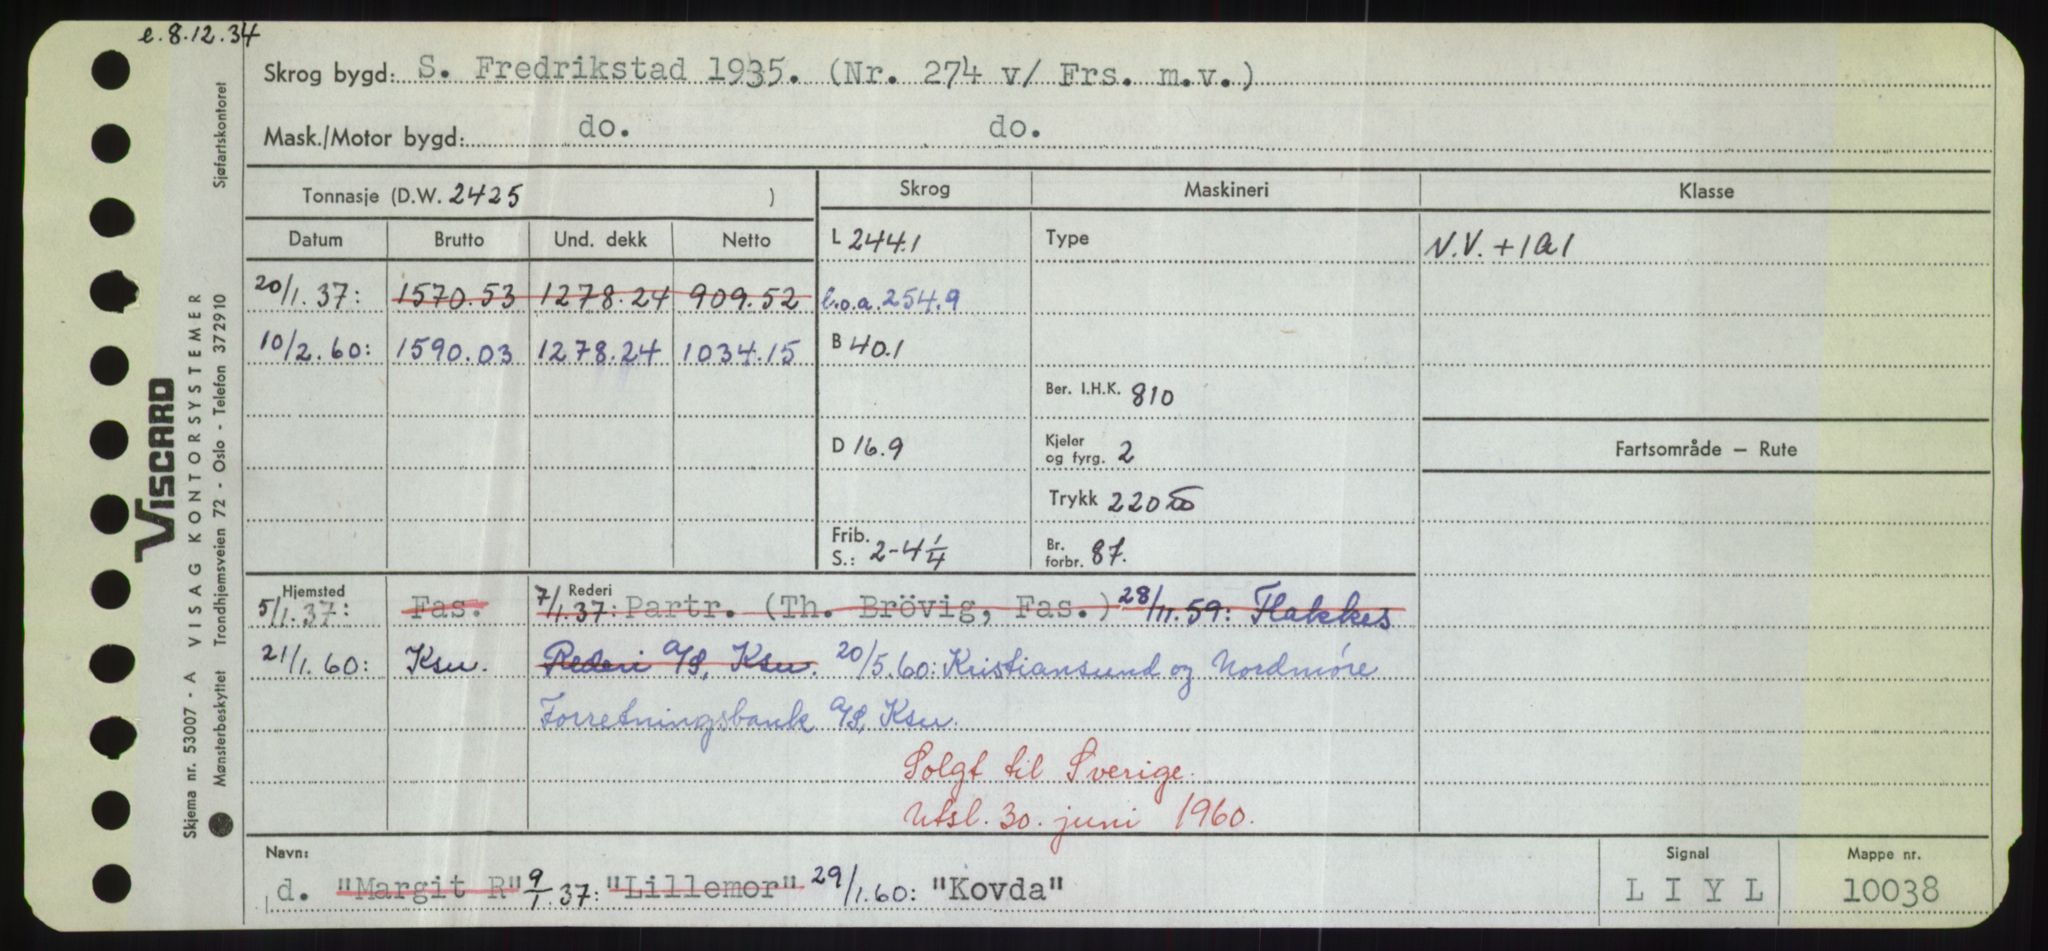 e. 8.12.34
Skrog bygd: S. Fredrikstad 1935. (Nr. 274 v/ Frs. m.v.)
Mask./Motor bygd: do. do.
Tonnasje (D.W. 2425 )
Skrog Maskineri Klasse
Datum Brutto Und. dekk Netto
L 244.1 Type N.V. + 1A1
20/1.37: 1570.53 1278.24 909.52 l.o.a. 254.9
10/2.60: 1590.03 1278.24 1034.15 B 40.1
Ber. I.H.K. 810
D 16.9 Kjeler og fyrg. 2
Fartsområde — Rute
Trykk 220
Frib. S.: 2-4 1/4 Br. forbr. 87.
Hjemsted Rederi
5/1.37: Fas. 7/1.37: Partr. (Th. Brövig, Fas.) 28/11.59: Flakkes
21/1.60: Ksu. Rederi A/S, Ksu. 20/5.60: Kristiansund og Nordmøre
Forretningsbank A/S, Ksu.
Solgt til Sverige.
Utsl. 30. juni 1960.
Navn: Signal Mappe nr.
d. "Margit R" 9/1.37: "Lillemor" 29/1.60: "Kovda" LIYL 10038
VISCARD
Skjema nr. 53007 - A VISAG KONTORSYSTEMER
Mønsterbeskyttet Trondhjemsveien 72 - Oslo - Telefon 372910 Sjøfartskontoret